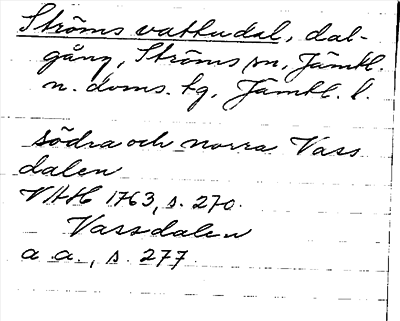 Ströms vattudal, dal-
gång, Ströms sn, Jämtl.
n. doms. tg, Jämtl. l.
södra och norra Vass
dalen
VAH 1763, s. 270.
Vassdalen
a a., s. 277